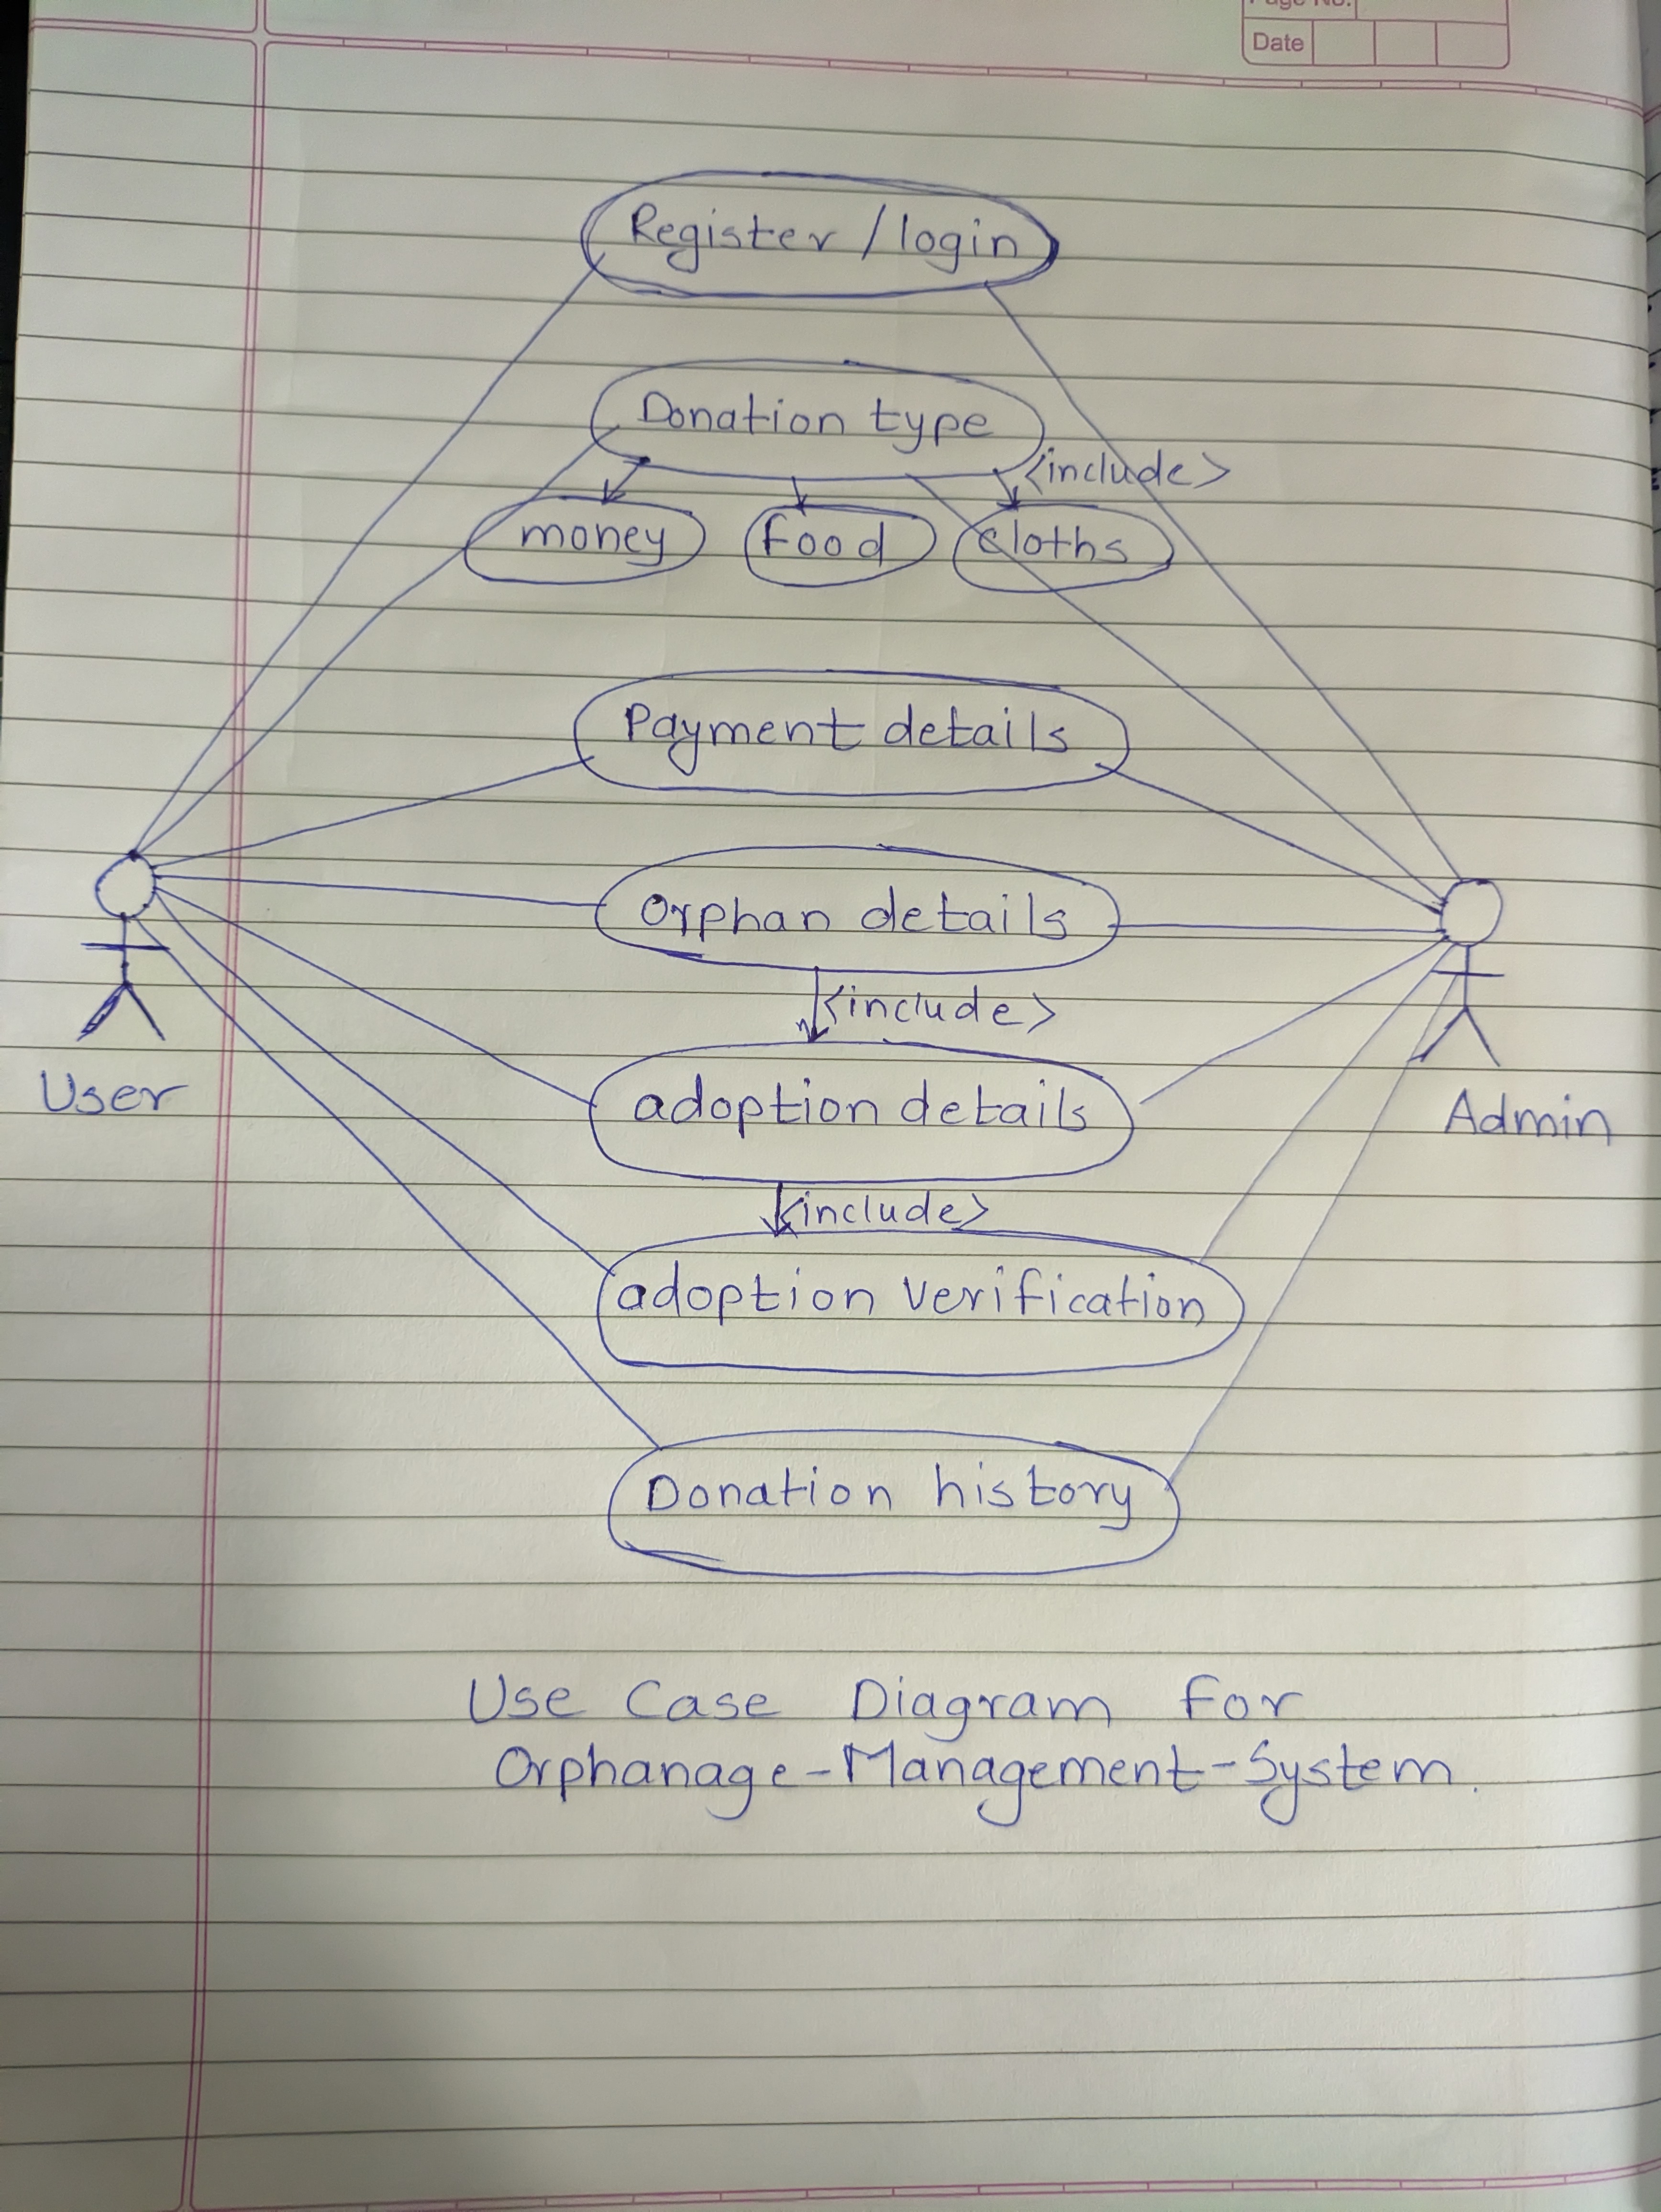 Page No.
Date
Register / login
Donation type
<include>
money
Food
cloths
Payment details
Orphan details
<include>
User
adoption details
Admin
<include>
adoption Verification
Donation history
Use Case Diagram For
Orphanage-Management-System.